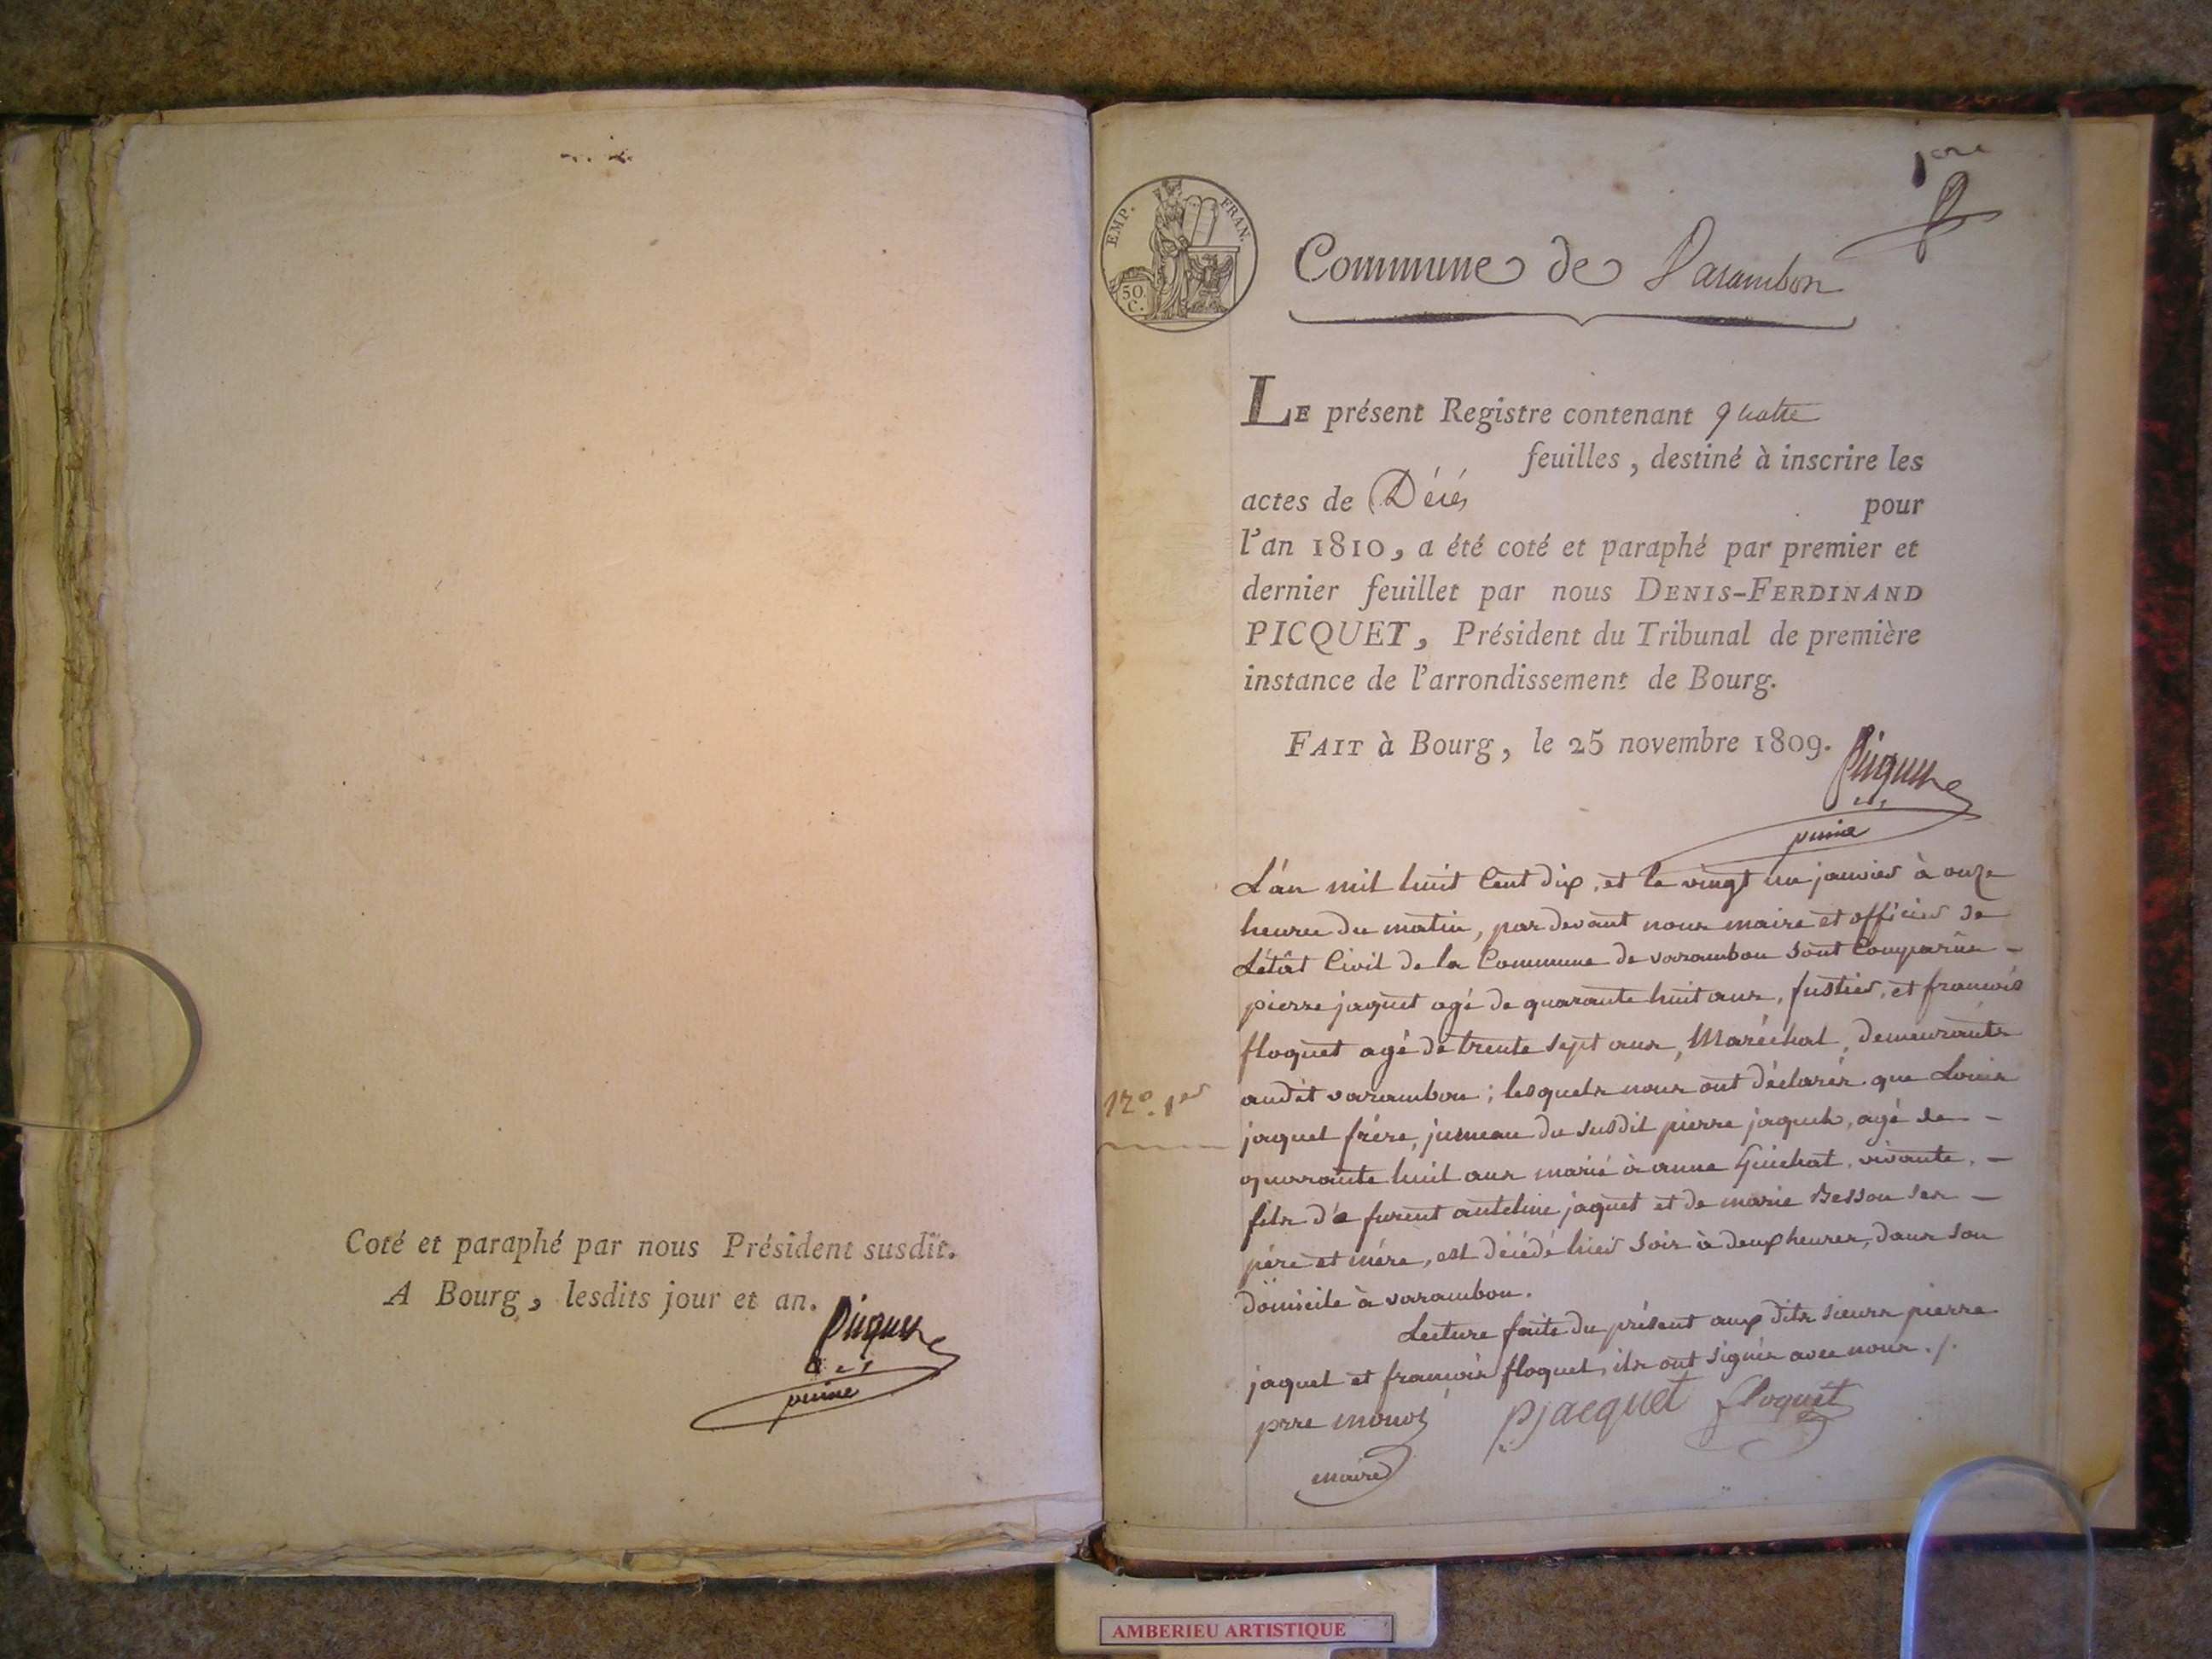 Coté et paraphé par nous Président susdit.
A Bourg, lesdits jour et an.
Picquet
1ere
EMP. FRAN.
50.
C.
Commune de Varambon
LE présent Registre contenant quatre
feuilles, destiné à inscrire les
actes de Décés pour
l'an 1810, a été coté et paraphé par premier et
dernier feuillet par nous DENIS-FERDINAND
PICQUET, Président du Tribunal de première
instance de l'arrondissement de Bourg.
FAIT à Bourg, le 25 novembre 1809.
Picquet
L'an mil huit Cent dix, et le vingt un janvier à onze
heures du matin, par devant nous maire et officier de
L'étât Civil de la Commune de varambon sont Comparûs -
pierre jaquet agé de quarante huit ans, fustier, et francois
floquet agé de trente sept ans, Maréchal, demeurants
audit varambon; lesquels nous ont déclarés que Louis
N°. 1er
jaquet frére, jumeau du susdit pierre jaquet, agé de -
quarante huit ans marié à anne Guichat, vivante, -
fils d'e furent antelme jaquet et de marie Besson ses -
pére et mére, est décédé hier soir à deux heures, dans son
domicile à varambon.
Lecture faite du présent aux dits sieurs pierre
jaquet et francois floquet, ils ont signés avec nous ./.
prre monot pjacquet floquet
maire
AMBERIEU ARTISTIQUE